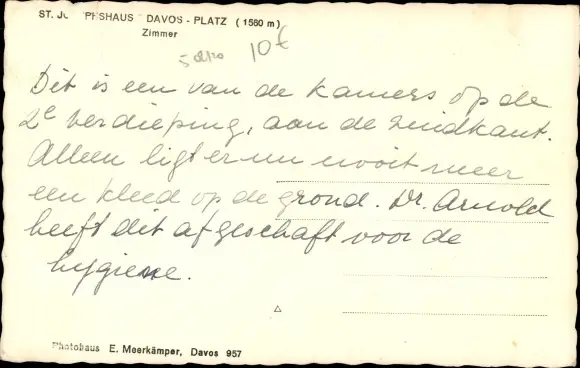 ST. JOSEPHSHAUS DAVOS - PLATZ (1560 m)
Zimmer
10€
Dit is een van de kamers op de
2e verdieping, aan de zuidkant.
Alleen ligt er nu nooit meer
een kleed op de grond. Dr. Arnold
heeft dit afgeschaft voor de
hygiene.
Photohaus E. Meerkämper, Davos 957